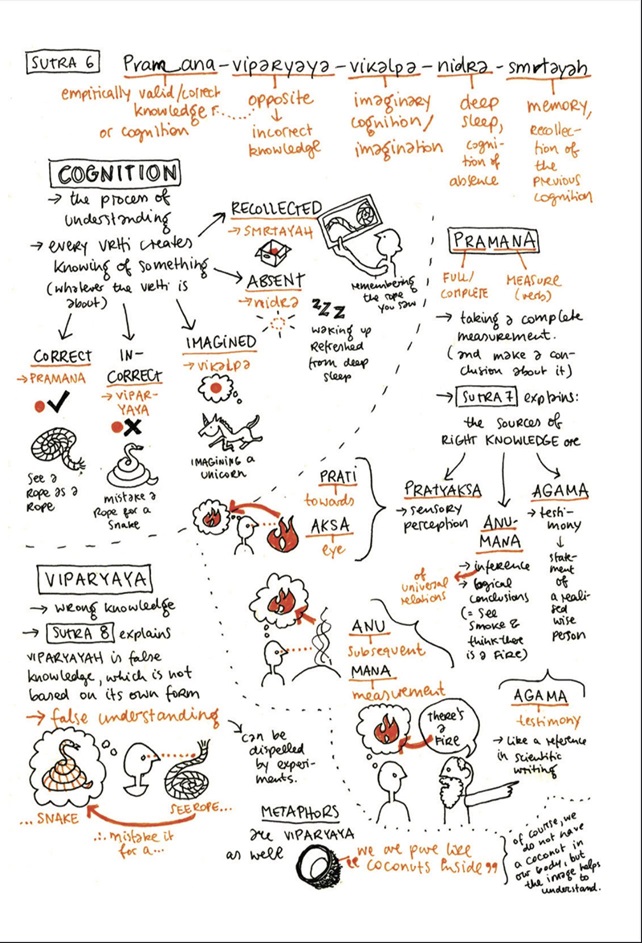 SUTRA 6
Pramana-viparyaya-vikalpa-nidra-smrtayah
empirically valid/correct
knowledge
or cognition
opposite
incorrect
knowledge
imaginary
cognition/
imagination
deep
sleep,
cogni-
tion of
absence
memory,
recollec-
tion of
the
previous
cognition
COGNITION
→ the process of
understanding
→ every vrtti creates
knowing of something
(whatever the vrtti is
about)
CORRECT
→ PRAMANA
See a
Rope as a
Rope
IN-
CORRECT
→ VIPAR-
YAYA
mistake a
Rope for a
Snake
IMAGINED
→ vikalpa
IMAGINING a
UNICORN
RECOLLECTED
→ SMRTAYAH
remembering
the rope
you saw
ABSENT
→ nidra
zzz
waking up
Refreshed
from deep
sleep
PRAMANA
FULL/
COMPLETE
MEASURE
(verb)
→ taking a complete
measurement.
(and make a con-
clusion about it)
→ SUTRA 7 explains:
the sources of
RIGHT KNOWLEDGE are
PRATYAKSA
→ sensory
perception
ANU-
MANA
→ inference
→ logical
conclusions
(= see
smoke &
think there
is a fire)
of
universal
relations
AGAMA
→ testi-
mony
↓
state-
ment
of
a reali-
sed
wise
person
PRATI
towards
AKSA
eye
ANU
subsequent
MANA
measurement
AGAMA
testimony
→ like a reference
in scientific
writing
there's
a
fire
VIPARYAYA
→ wrong knowledge
→ SUTRA 8 explains
VIPARYAYAH is false
knowledge, which is not
based on its own form
→ false understanding
... SNAKE
SEE ROPE...
∴ mistake it
for a...
can be
dispelled
by experi-
ments.
METAPHORS
are VIPARYAYA
as well
we are pure like
"coconuts inside"
of course, we
do not have
a coconut in
our body, but
the image helps
to understand.